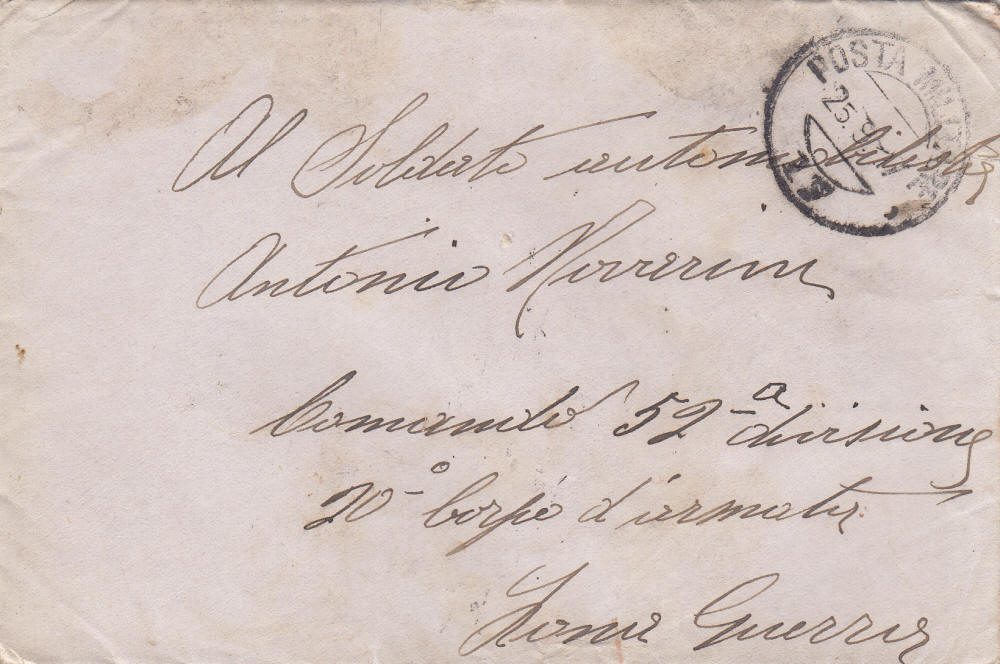 POSTA MILITARE
25.9.17
Al Soldato automobilista
Antonio
Comando 52ª divisione
20° Corpo d'armata
Zona Guerra